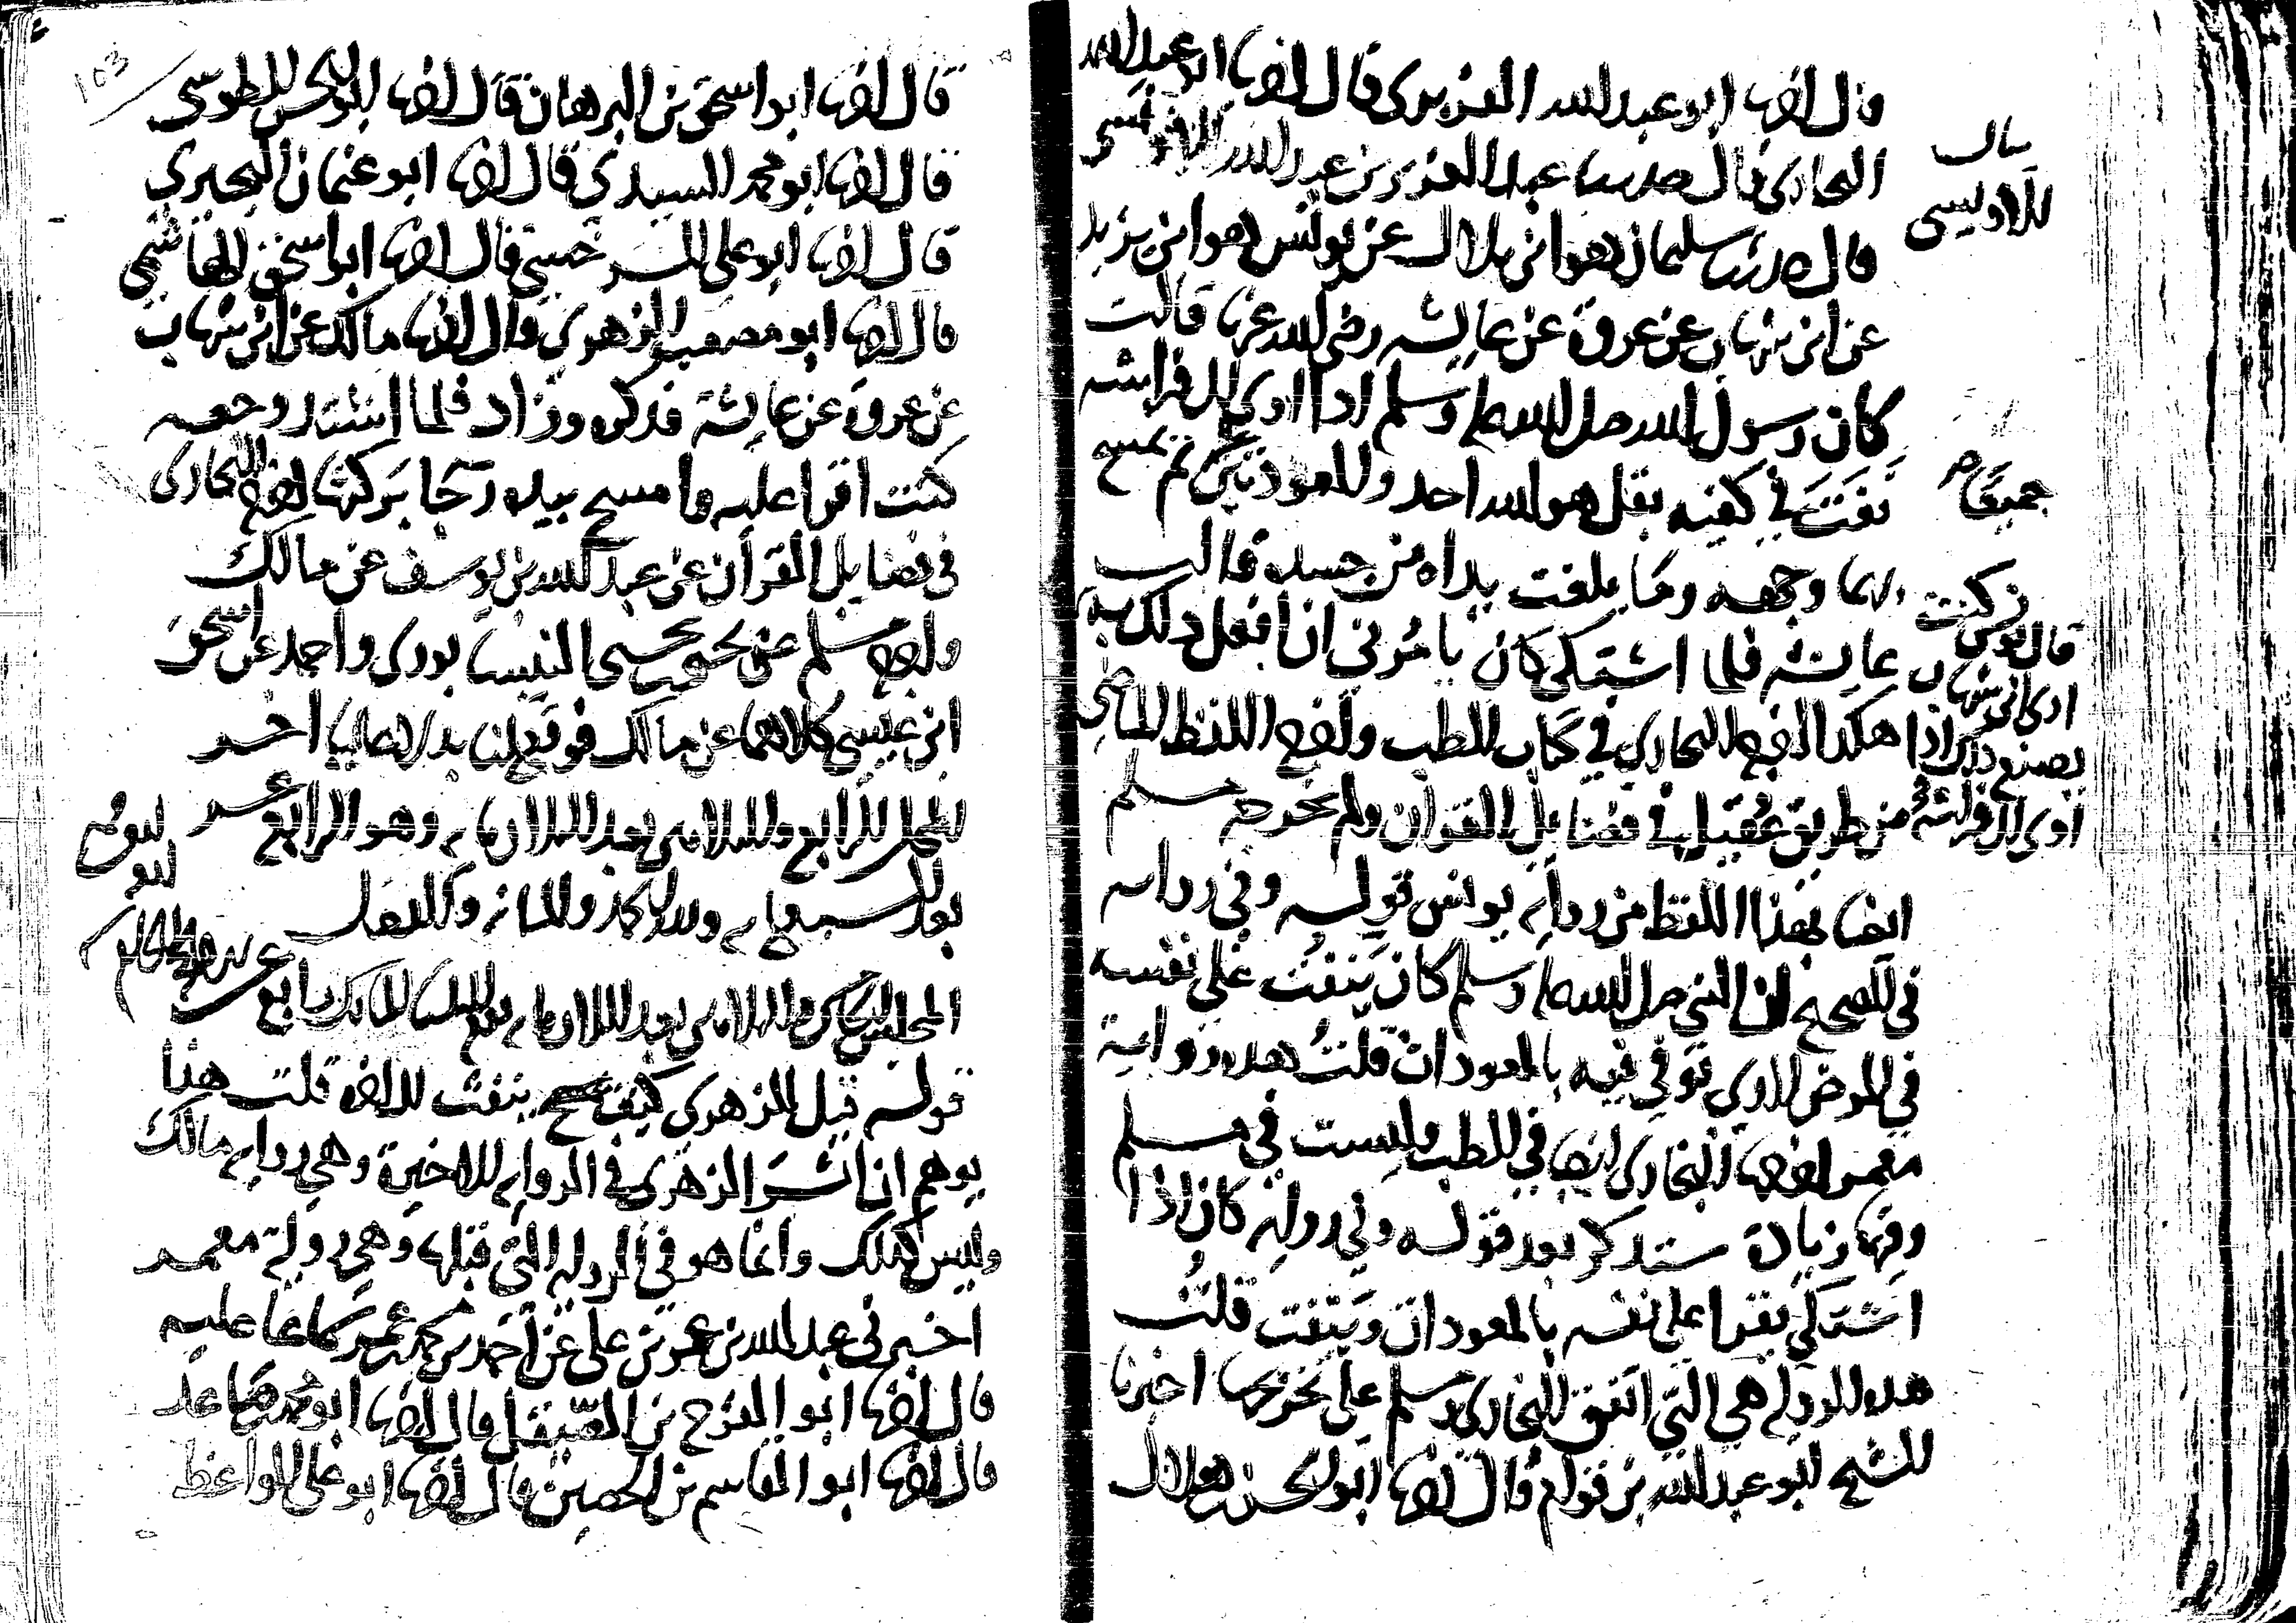 قال انا ابو عبد الله الفربري قال انا ابو عبد الله
البخاري قال حدثنا عبد العزيز بن عبد الله الاويسي
قال حدثنا سليمان هو ابن بلال عن يونس هو ابن يزيد
عن ابن شهاب عن عروة عن عايشه رضي الله عنها قالت
كان رسول الله صلى الله عليه وسلم اذا اوى الى فراشه
نفث في كفيه بقل هو الله احد والمعوذتين ثم يمسح
بهما وجهه وما بلغت يداه من جسده قالت
عايشه فلما اشتكى كان يامرني ان افعل ذلك به
هكذا اخرجه البخاري في كتاب الطب واخرج اللفظ الماضي
من طريق عقيل في فضايل القران ولم يخرجه مسلم
ايضا بهذا اللفظ من رواية يونس قوله وفي رواية
في الصحيح ان النبي صلى الله عليه وسلم كان ينفث على نفسه
في المرض الذي توفي فيه بالمعوذات قلت هذه رواية
معمر اخرجها البخاري ايضا في الطب وليست في مسلم
وفيها زيادة ستذكر بعد قوله وفي رواية كان اذا
اشتكى يقرا على نفسه بالمعوذات وينفث قلت
هذه الرواية هي التي اتفق البخاري ومسلم على تخريجها اخبرنا
الشيخ ابو عبد الله بن قوام قال انا ابو الحسن بن هلال
الاويسي
جميعا
قال يونس كنت
ارى ابن شهاب
يصنع ذلك اذا
اوى الى فراشه
103
قال انا ابو اسحق بن البرهان قال انا ابو الحسن الطوسي
قال انا ابو محمد السيدي قال انا ابو عثمان البحيري
قال انا ابو علي السرخسي قال انا ابو اسحق الهاشمي
قال انا ابو مصعب الزهري قال انا مالك عن ابن شهاب
عن عروة عن عايشة فذكره وزاد فلما اشتد وجعه
كنت اقرا عليه وامسح بيده رجا بركتها اخرجه البخاري
في فضايل القرآن عن عبد الله بن يوسف عن مالك
واخرجه مسلم عن يحيى بن يحيى النيسابوري واحمد عن اسحق
ابن عيسى كلاهما عن مالك فوقع لنا بدلا عاليا اخر
المجلس الرابع والثلاثين بعد الثلاثمائة وهو الرابع عشر
بعد السبعمائة
المجلس الخامس والثلاثين بعد الثلاثمائة
قوله قيل للزهري كيف ينفث الى اخره قلت هذا
يوهم ان اثر الزهري في الرواية الاخيرة وهي رواية مالك
وليس كذلك وانما هو في الرواية التي قبلها وهي رواية معمر
اخبرني عبد الله بن عمر بن علي عن احمد بن محمد بن عمر سماعا عليه
قال انا ابو الفرج بن الصيقل قال انا ابو محمد بن صاعد
قال انا ابو القاسم بن الحصين قال انا ابو علي الواعظ